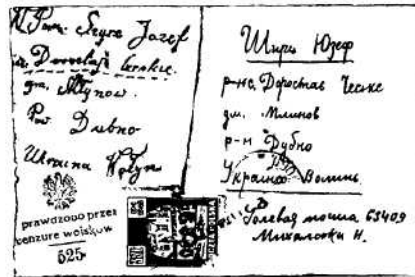 W Pan. Szyra Jozef
Dorostaje Czeskie.
gm. Młynow.
Pow. Dubno
Ukraina Wołyn
prawdzono przez
cenzure wojskow
525
Шира Юзеф
р-нс. Доростая Ческе
гм. Млинов
р-н Дубно
Украина Волинь
Полевая почта 65409
Михаловски Н.